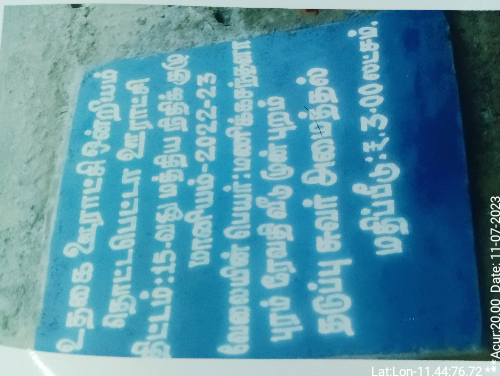 உதகை ஊராட்சி ஒன்றியம்
தொட்டபெட்டா ஊராட்சி
திட்டம்:15-வது மத்திய நிதிக் குழு
மானியம்-2022-23
வேலையின் பெயர்:மணிக்கசுந்தரா
புரம் ரேவதி வீடு முன்புறம்
தடுப்பு சுவர் அமைத்தல்
மதிப்பீடு:ரூ.3.00 லட்சம்.
Lat:Lon-11.44:76.72 **
*Acur=20.00 Date: 11-07-2023